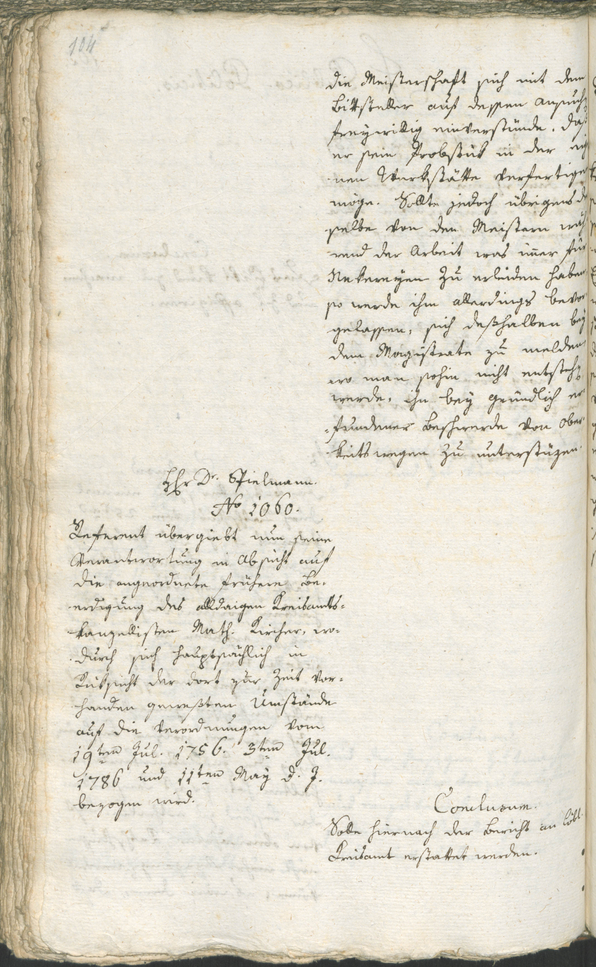 104
die Meisterschaft sich mit dem
Bittsteller auf dessen Ansuch
freywillig einverstünde, daß
er sein Probstük in der eig
nen Werkstätte verfertigen
möge. Sollte jedoch übrigens
selbe von den Meistern wäh
rend der Arbeit was imer für
Nekereyen zu erleiden haben
so werde ihm allerdings bevor
gelassen, sich deßhalben bey
dem Magistrate zu melden
wo man sohin nicht entsteh
werde, ihn bey gründlich er
fundener Beschwerde von Ober
keitswegen zu unterstüzen.
Hr Dr. Spielmann.
No 1060.
Referent übergiebt nun seine
Verantwortung in Absicht auf
die angeordnete frühere Be=
erdigung des alldaigen Kreisamts=
kanzellisten Math. Kircher, wo=
durch sich hauptsächlich in
Rüksicht der dort zur Zeit vor=
handen gewesten Umstände
auf die Verordnungen vom
19ten Jul. 1756. 3ten Jul.
1786 und 11ten May d. J.
bezogen wird.
Conclusum.
Solle hiernach der Bericht an löbl.
Kreisamt erstattet werden.